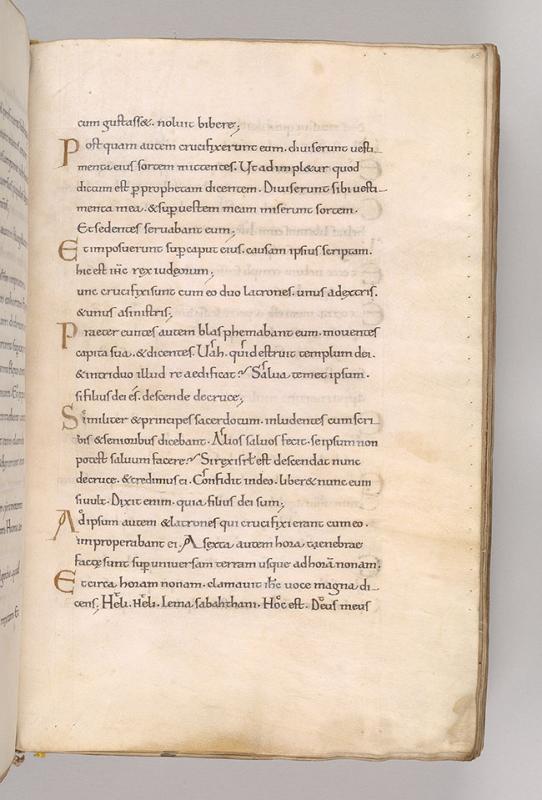 65
cum gustass&. noluit bibere;
Post quam autem crucifixerunt eum. diviserunt vesti
menta eius sortem mittentes. Ut adimpler&ur quod
dictum est p̄ prophetam dicentem. Diviserunt sibi vesti-
menta mea. & sup̄ vestem meam miserunt sortem.
Et sedentes servabant eum;
Et imposuerunt sup̄ caput eius. causam ipsius scriptam.
hic est ih̄c rex iudeorum;
unc crucifixi sunt cum eo duo latrones. unus adextris.
& unus asinistris;
Praeter euntes autem blasphemabant eum. moventes
capita sua. & dicentes. Uah. qui destruit templum dei.
& intriduo illud reaedificat. Salva temet ipsum.
si filius dei es. descende decruce;
Similiter & principes sacerdotum. inludentes cum scri
bis & senioribus dicebant. Alios salvos fecit. se ipsum non
potest salvum facere. Si rex isrl̄ est descendat nunc
decruce. & credimus ei. Confidit indeo. liber& nunc eum
si vult. Dixit enim. quia filius dei sum;
Adipsum autem & latrones qui crucifixi erant cum eo.
improperabant ei. A sexta autem hora tenebrae
factę sunt sup̄ universam terram usque ad horā nonam.
Et circa horam nonam. clamavit ih̄c voce magna di-
cens; Heli. Heli. Lema sabahthani. Hoc est. Deus meus